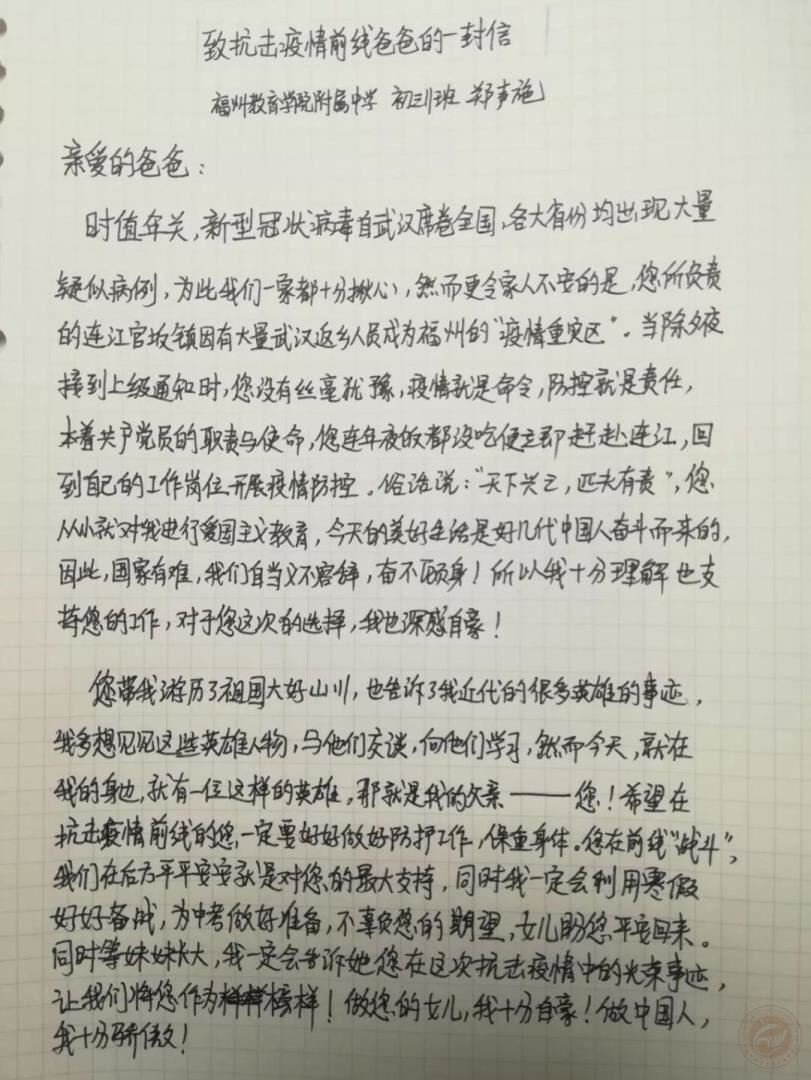 致抗击疫情前线爸爸的一封信
福州教育学院附属中学 初三1班 郑聿施
亲爱的爸爸：
时值年关，新型冠状病毒自武汉席卷全国，各大省份均出现大量
疑似病例，为此我们一家都十分揪心，然而更令家人不安的是，您所负责
的连江官坂镇因有大量武汉返乡人员成为福州的“疫情重灾区”。当除夕夜
接到上级通知时，您没有丝毫犹豫，疫情就是命令，防控就是责任，
本着共产党员的职责与使命，您连年夜饭都没吃便立即赶赴连江，回
到自己的工作岗位开展疫情防控。俗话说：“天下兴亡，匹夫有责”，您
从小就对我进行爱国主义教育，今天的美好生活是好几代中国人奋斗而来的，
因此，国家有难，我们自当义不容辞，奋不顾身！所以我十分理解也支
持您的工作，对于您这次的选择，我也深感自豪！
您带我游历了祖国大好山川，也告诉了我近代的很多英雄的事迹，
我多想见见这些英雄人物，与他们交谈，向他们学习，然而今天，就在
我的身边，就有一位这样的英雄，那就是我的父亲——您！希望在
抗击疫情前线的您，一定要好好做好防护工作，保重身体。您在前线“战斗”，
我们在后方平平安安就是对您的最大支持，同时我一定会利用寒假
好好备战，为中考做好准备，不辜负您的期望，女儿盼您平安回来。
同时等妹妹长大，我一定会告诉她您在这次抗击疫情中的光荣事迹，
让我们将您作为榜样！做您的女儿，我十分自豪！做中国人，
我十分骄傲！